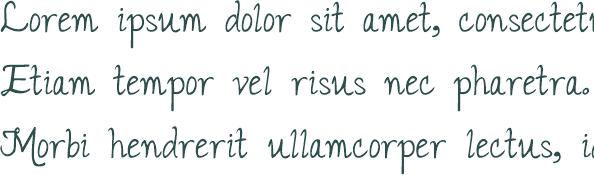 Lorem ipsum dolor sit amet, consectetu
Etiam tempor vel risus nec pharetra.
Morbi hendrerit ullamcorper lectus,